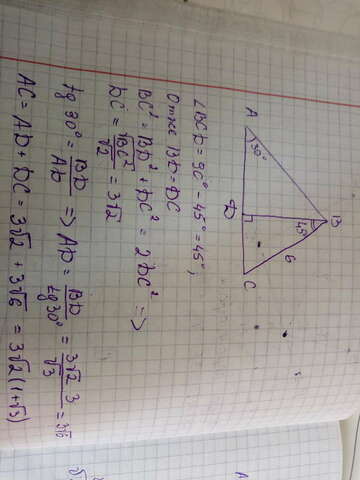 A
30°
B
45°
6
D
C
∠BCD = 90° - 45° = 45°;
Отже BD = DC
BC² = BD² + DC² = 2DC² =>
DC = √BC²/√2 = 3√2
tg 30° = BD/AD => AD = BD/tg30° = 3√2 3/√3 = 3√6
AC = AD + DC = 3√2 + 3√6 = 3√2(1+√3)
A